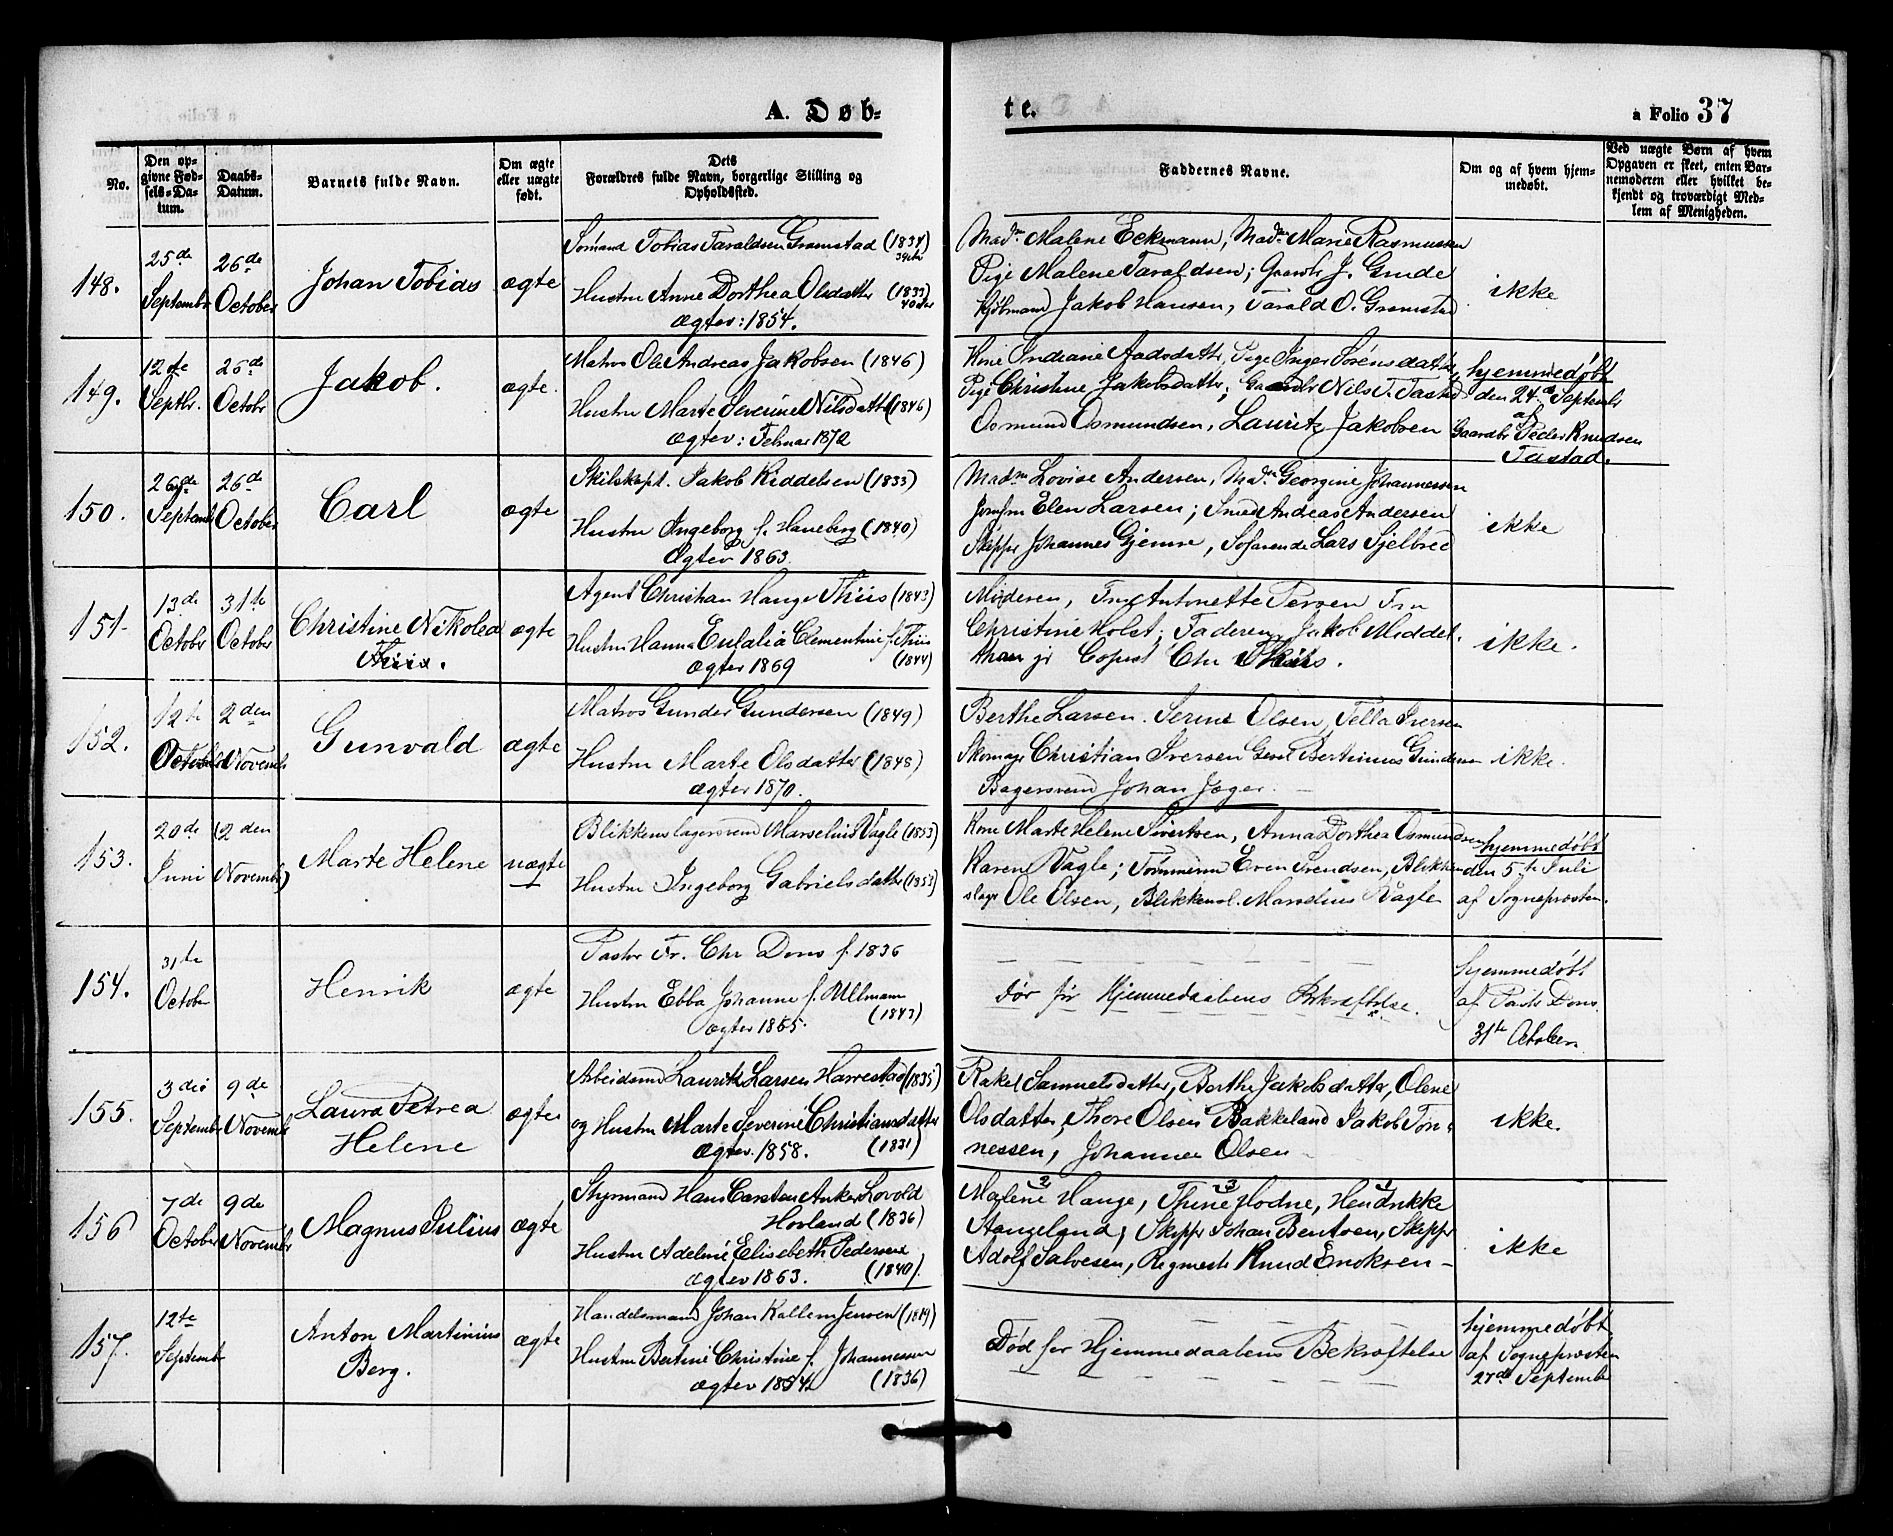 A. Døb-
te.
a Folio 37
No.
Den op-
givne Fød-
sels-Da-
tum.
Daabs-
Datum.
Barnets fulde Navn.
Om ægte
eller uægte
født.
Dets
Forældres fulde Navn, borgerlige Stilling og
Opholdssted.
Faddernes Navne.
Om og af hvem hjem-
medøbt.
Ved uægte Børn af hvem
Opgaven er skeet, enten Bar-
nemoderen eller hvilket be-
kjendt og troværdigt Med-
lem af Menigheden.
148.
25de
Septembr
26de
October
Johan Tobias
ægte
Sømand Tobias Taraldsen Gramstad (1834)
Hustru Anne Dorthea Olsdatter (1833)
Ægtev: 1854.
Mad. Malene Eckmann, Mad. Marie Rasmussen
Pige Malene Taraldsen; Gaardb. J. Grude
Kjøbmand Jakob Hansen, Tarald O. Gramstad
ikke
149.
12te
Septbr.
26de
Octobr
Jakob.
ægte.
Matros Ole Andreas Jakobsen (1846)
Hustru Marte Severine Nilsdatter (1846)
Ægtev: Februar 1872
Kone Indianie Aadsdatter, Pige Inger Sørensdatter
Pige Christine Jakobsdatter; Gaardbr Nils T. Tastad
Osmund Osmundsen, Lauritz Jakobsen
hjemmedøbt
den 24de Septembr
af
Gaardbr Peder Knudsen
Tastad.
150.
26de
Septembr
26de
October
Carl
ægte
Skibskapt. Jakob Kiddelsen (1833)
Hustru Ingeborg f. Haneberg (1840)
Ægtev 1863.
Madm Lovise Andersen, Mad. Georgine Johannessen
Jomfru Elen Larsen; Smed Andreas Andersen
Skipper Johannes Gjemre, Søfarende Lars Sjelbred
ikke
151.
13de
Octobr
31te
October
Christine Nikolea
Thiis.
ægte
Agent Christian Hauge Thiis (1843)
Hustru Hanna Eulalia Clementine f. Thiis
(1844)
Ægtev 1869
Moderen, Fru Antonette Fru
Christine Holst; Faderen, Jakob Middel-
thon jr Copist Chr Thiis.
ikke.
152.
12te
October
2den
Novembr
Gunvald
ægte
Matros Gunder Gundersen (1849)
Hustru Marte Olsdatter (1848)
Ægtev 1870.
Berthe Larsen. Serine Olsen, Tella Iversen
Skomager Christian Iversen Bertinius Gundersen
Bagersvend Johan Jæger.
ikke.
153.
20de
Juni
(2den
Novembr)
Marte Helene
uægte
Blikkenslagersvend Marselius Vagle (1853)
Hustru Ingeborg Gabrielsdatter (1853)
Kone Marte Helene Sivertsen, Anna Dorthea Osmundsen
Karene Vagle; Tømmermd Even Svendsen, Blikken-
slager Ole Olsen, Blikkensl. Marselius Vagle
hjemmedøbt
den 5te Juli
af Sogneprosten.
154.
31te
October
Henrik
ægte
Pastor Fr. Chr Dons f. 1836
Hustru Ebba Johanne f. Ullmann
(1843)
Ægtev 1865.
Død før Hjemmedaabens Bekræftelse.
hjemmedøbt
af Past. Dons.
31te October
155.
3die
Septembr
9de
Novembr
Laura Petrea
Helene
ægte
Arbeidsmd Lauritz Larsen Harrestad (1835)
og Hustru Marte Severine Christiansdatter
(1831)
Ægtev. 1858.
Rakel Samuelsdatter, Berthe Jakobsdatter, Olene
Olsdatter, Thore Olsen Bakkeland Jakob Tøn-
nessen, Johannes Olsen
ikke.
156
7de
October
9de
Novembr
Magnus Julius
ægte
Styrmand Hans Carsten Anker Lovold
Hovland (1836)
Hustru Adeline Elisebeth Pedersen
(1840)
Ægtev 1863.
Malene Hauge, Thine Hodne, Hendrikke
Stangeland, Skipper Johan Bentsen, Skipper
Adolf Salvesen, Regmestr Knud Enoksen
ikke
157.
12te
Septembr
Anton Martinius
Berg.
ægte
Handelsmand Johan Kallem Jensen (1819)
Hustru Bertine Christine f. Johannessen
(1836)
Ægtev 1854
Død før Hjemmedaabens Bekræftelse
hjemmedøbt
af Sogneprosten
27de Septembr